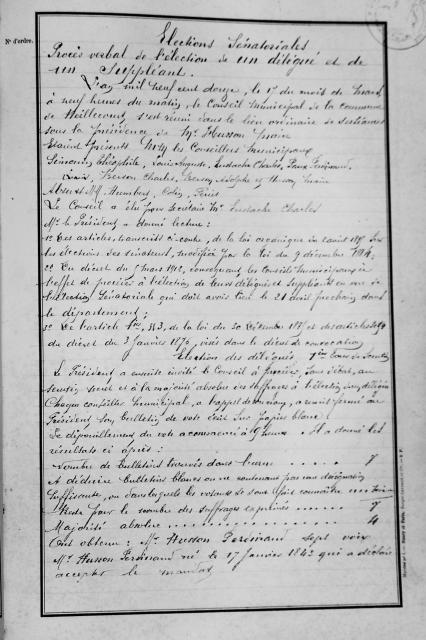 N° d'ordre.
Elections Sénatoriales
Procès verbal de l'élection de un délégué et de
un Suppléant.
L'an mil neuf cent douze, le 1er du mois de
à neuf heures du matin, le Conseil Municipal de la commune
de s'est réuni dans le lieu ordinaire de
sous la présidence de Mr Husson Maire
Etaient présents MM les Conseillers Municipaux
Théophile, Louis Auguste, Eustache Charles,
Charles, Adolphe et Husson, Maire
Absents MM Humbert, Colin,
Le Conseil a élu pour Secrétaire Mr Eustache Charles
Mr le Président a donné lecture :
1° Des articles, transcrits ci-contre, de la loi organique du 2 août 1875 sur
les élections des sénateurs, modifiée par la loi du 9 décembre 1884.
2° Du décret du mars 1912, convoquant les Conseils municipaux à
l'effet de procéder à l'élection de leurs délégués et suppléants en vue de
l'élection Sénatoriale qui doit avoir lieu le 21 avril prochain dans
le département ;
3° De l'article 1er, § 3, de la loi du 30 décembre 1875 et des articles
du décret du 3 janvier 1876, visés dans le décret de convocation
Election des délégués. 1er tour de Scrutin
Le Président a ensuite invité le Conseil à procéder, sans débat, au
scrutin secret et à la majorité absolue des suffrages à l'élection du délégué
Chaque conseiller municipal, à l'appel de son nom, a remis fermé au
Président son bulletin de vote écrit sur papier blanc.
Le dépouillement du vote a commencé à 9 heures. Il a donné les
résultats ci après :
Nombre de bulletins trouvés dans l'urne . . . . . 7
A déduire bulletins blancs ou ne contenant pas une désignation
suffisante, ou dans lesquels les votants se sont fait connaître
Reste pour le nombre des suffrages exprimés . . . . . 7
Majorité absolue . . . . . . . . . . 4
Ont obtenu : Mr Husson Ferdinand sept voix
Mr Husson Ferdinand né le 17 Janvier 1843 qui a déclaré
accepter le mandat